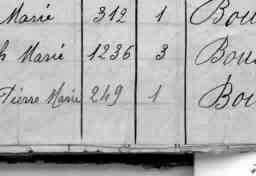 Marié 312 1 Bou
h Marié 1236 3 Bou
Pierre Marie 249 1 Bou